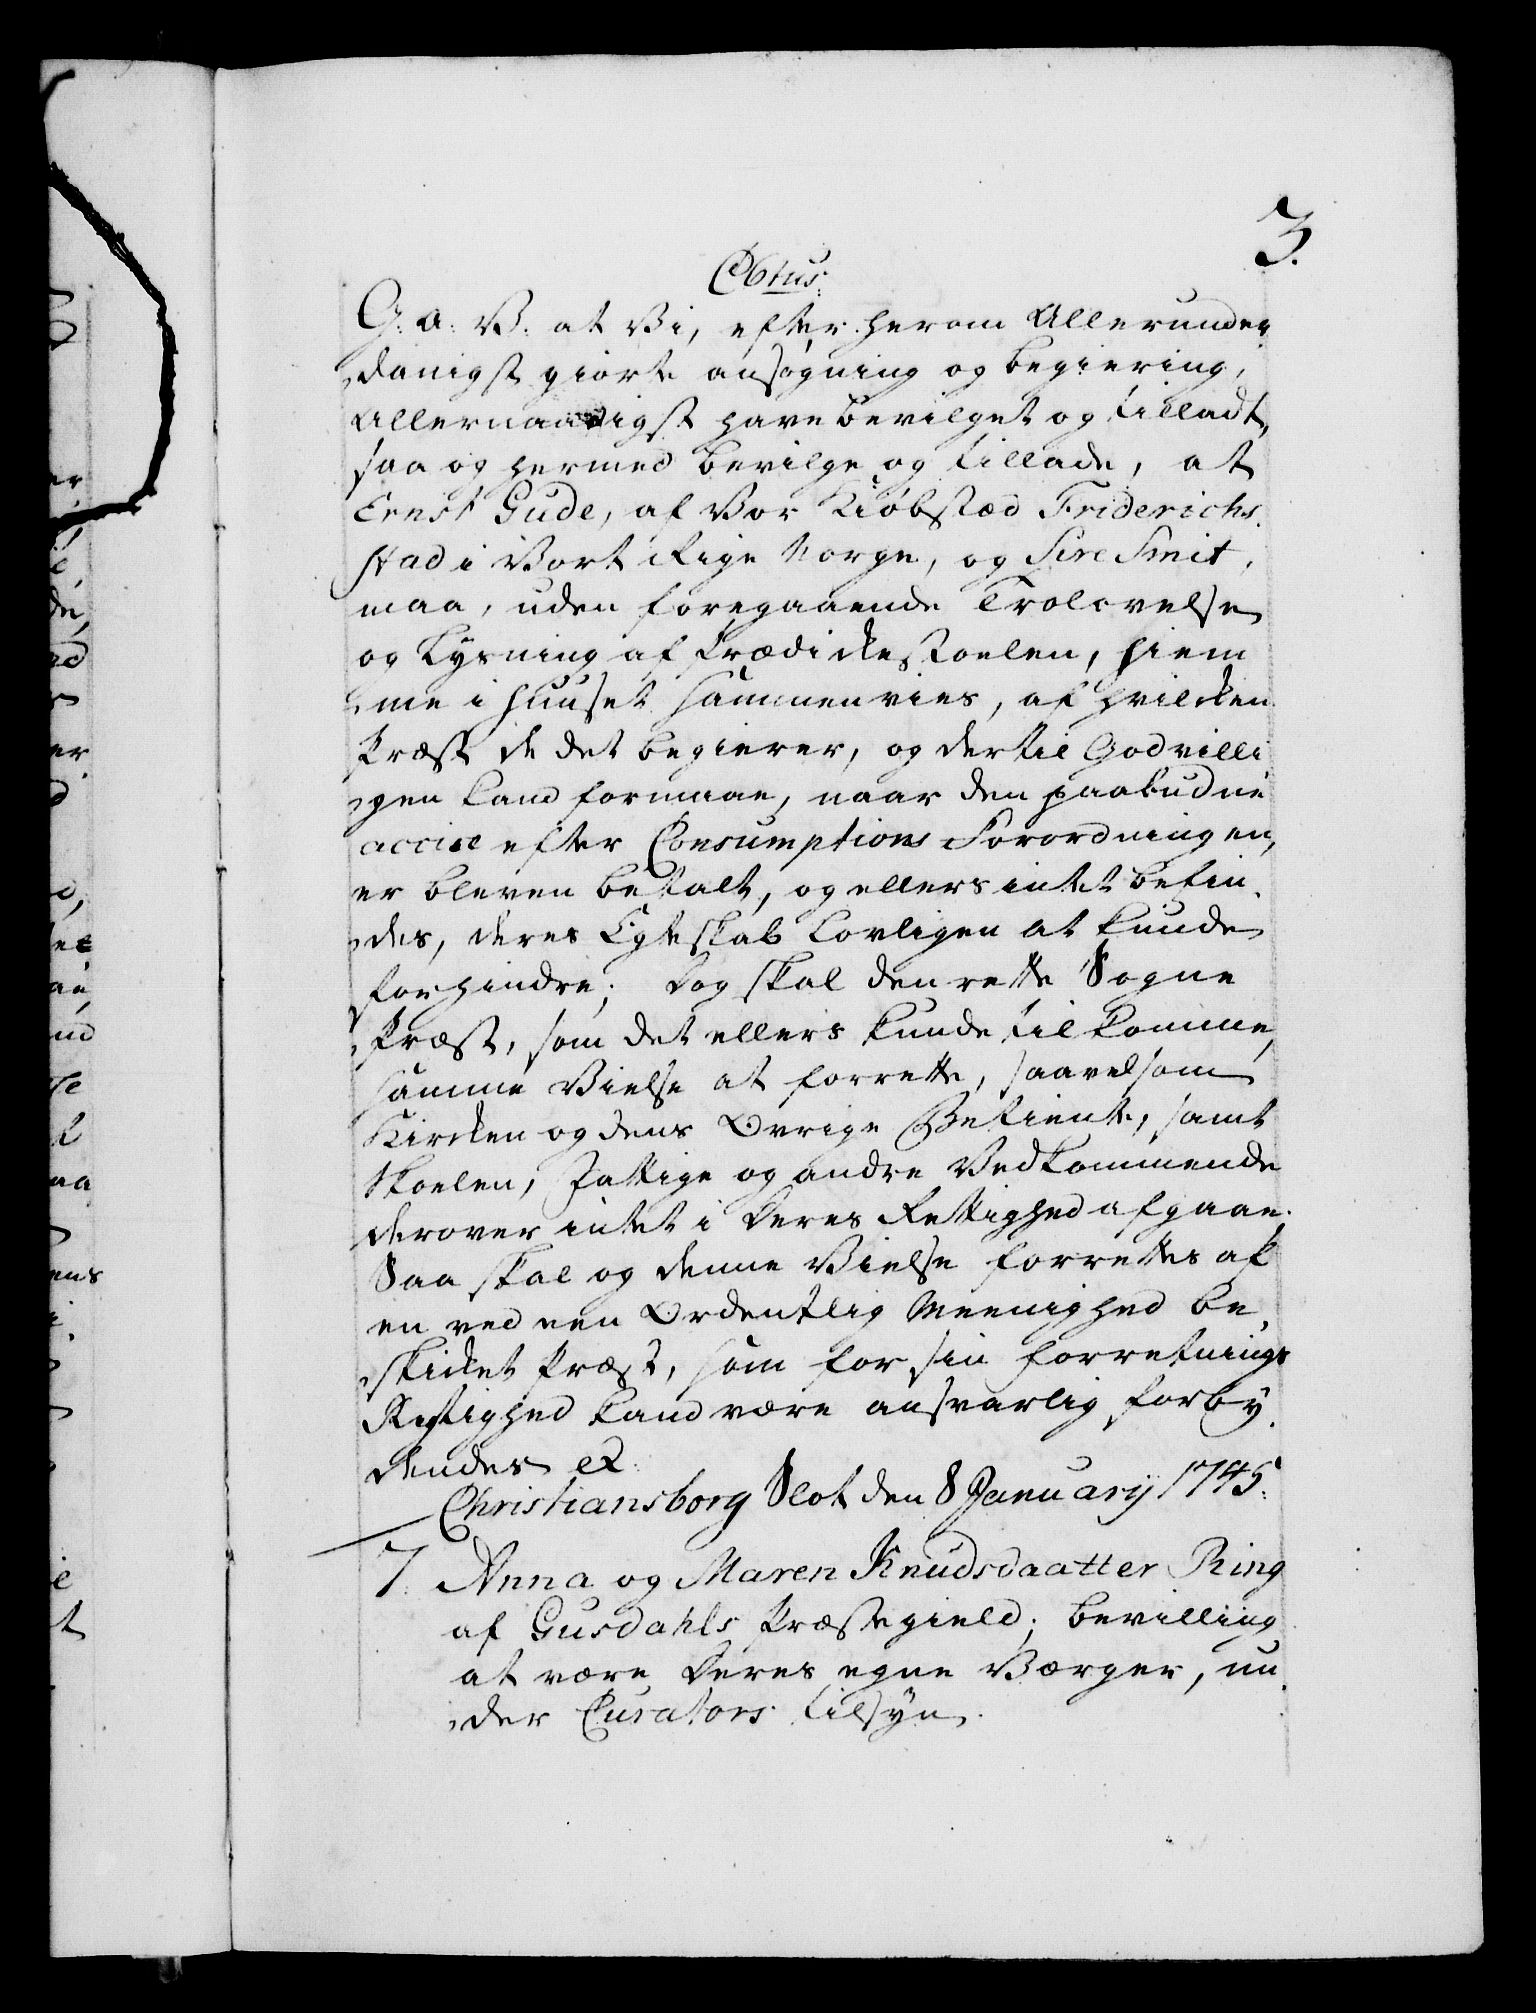 3.
C6tus.
G: a: V: at Vi, efter herom Allerunder
danigst giorte ansøgning og begiering,
Allernaadigst have bevilget og tilladt,
saa og hermed bevilge og tillade, at
Ernst Gude, af Vor Kiøbstæd Friderichs
stad i Vort Rige Norge, og Sire Smit,
maa, uden foregaaende Trolovelse
og Lysning af Prædickestoelen, hiem
me i Huuset sammenvies, af hvilcken
Præst de det begierer, og dertil Godvilli
gen kand formaae, naar den paabudne
accise efter Consumptions Forordningen,
er bleven betalt, og ellers intet befin
des, deres Egteskab Lovligen at kunde
forhindre; Dog skal den rette Sogne
Præst, som det ellers kunde tilkomme,
samme Vielse at forrette, saavelsom
Kircken og dens Øvrige Betiente, samt
Skoelen, Fattige og andre Vedkommende
derover intet i deres Rettighed afgaae.
Saa skal og denne Vielse forrettes af
en ved een Ordentlig Meenighed be
skicket Præst, som for sin forretnings
Rigtighed kand være ansvarlig forby
dendes etc:
Christiansborg Slot den 8 Januarij 1745.
7. Anna og Maren Knudsdaatter Ring
af Gusdahls Præstegield; bevilling
at være deres egne Værger, un
der Curators tilsyn.